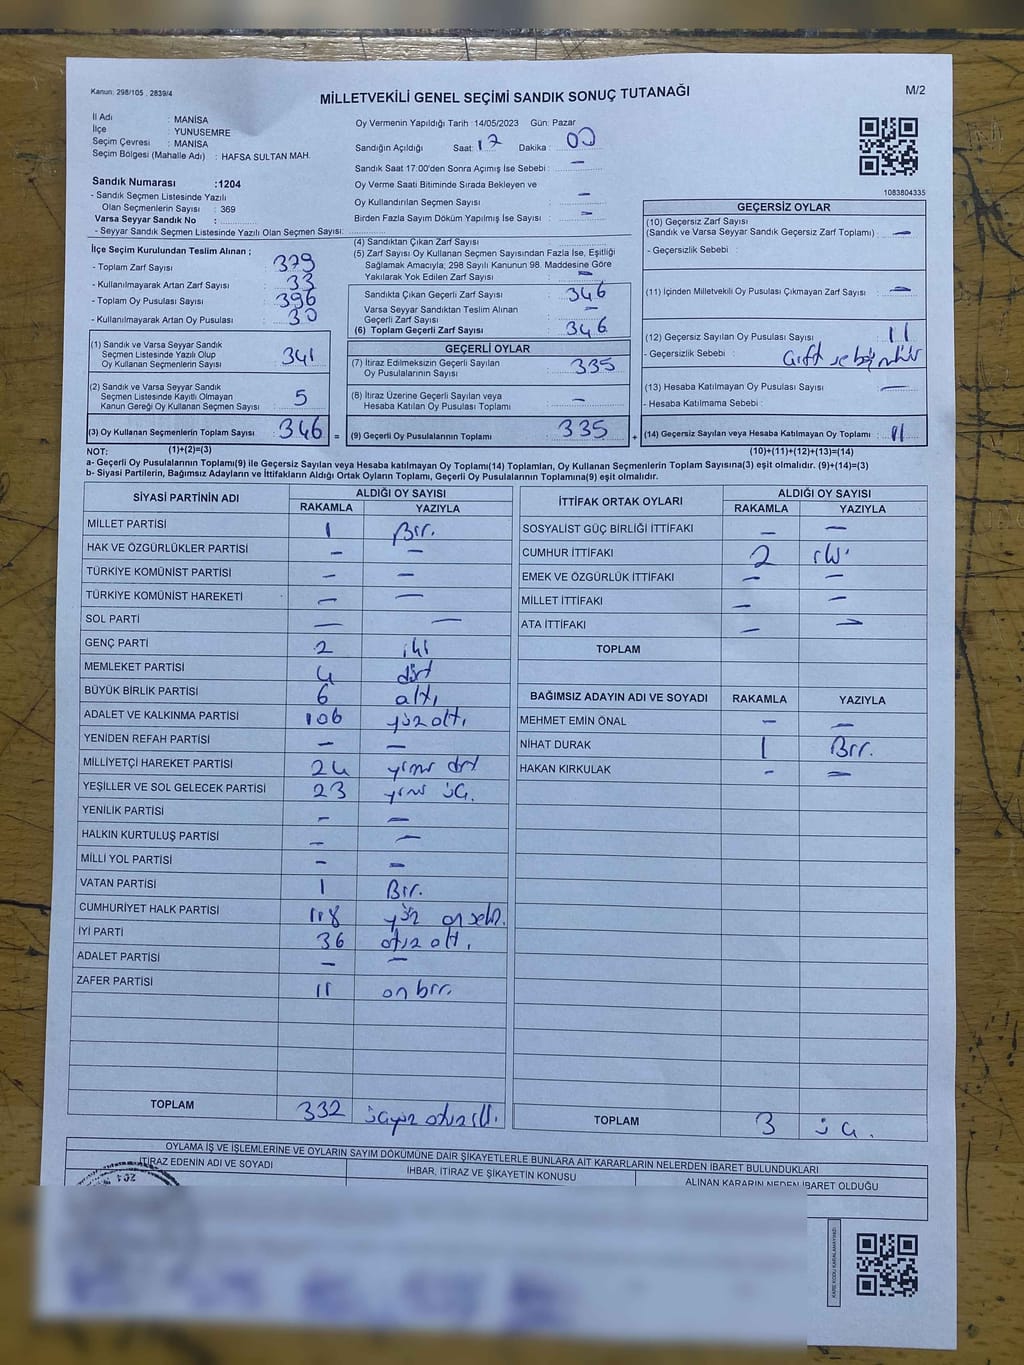 Kanun: 298/105 , 2839/4
MİLLETVEKİLİ GENEL SEÇİMİ SANDIK SONUÇ TUTANAĞI
M/2
İl Adı : MANİSA
İlçe : YUNUSEMRE
Seçim Çevresi : MANİSA
Seçim Bölgesi (Mahalle Adı) : HAFSA SULTAN MAH.
Sandık Numarası :1204
- Sandık Seçmen Listesinde Yazılı
Olan Seçmenlerin Sayısı : 369
Varsa Seyyar Sandık No :
- Seyyar Sandık Seçmen Listesinde Yazılı Olan Seçmen Sayısı:
Oy Vermenin Yapıldığı Tarih :14/05/2023 Gün: Pazar
Sandığın Açıldığı Saat: 17 Dakika : 00
Sandık Saat 17:00'den Sonra Açımış İse Sebebi : —
Oy Verme Saati Bitiminde Sırada Bekleyen ve
Oy Kullandırılan Seçmen Sayısı : —
Birden Fazla Sayım Döküm Yapılmış İse Sayısı : —
1083804335
İlçe Seçim Kurulundan Teslim Alınan ;
- Toplam Zarf Sayısı : 379
- Kullanılmayarak Artan Zarf Sayısı : 33
- Toplam Oy Pusulası Sayısı : 396
- Kullanılmayarak Artan Oy Pusulası : 30
(1) Sandık ve Varsa Seyyar Sandık
Seçmen Listesinde Yazılı Olup
Oy Kullanan Seçmenlerin Sayısı : 341
(2) Sandık ve Varsa Seyyar Sandık
Seçmen Listesinde Kayıtlı Olmayan
Kanun Gereği Oy Kullanan Seçmen Sayısı : 5
(3) Oy Kullanan Seçmenlerin Toplam Sayısı : 346
(1)+(2)=(3)
(4) Sandıktan Çıkan Zarf Sayısı :
(5) Zarf Sayısı Oy Kullanan Seçmen Sayısından Fazla İse, Eşitliği
Sağlamak Amacıyla; 298 Sayılı Kanunun 98. Maddesine Göre
Yakılarak Yok Edilen Zarf Sayısı : —
Sandıkta Çıkan Geçerli Zarf Sayısı : 346
Varsa Seyyar Sandıktan Teslim Alınan
Geçerli Zarf Sayısı : —
(6) Toplam Geçerli Zarf Sayısı : 346
GEÇERLİ OYLAR
(7) İtiraz Edilmeksizin Geçerli Sayılan
Oy Pusulalarının Sayısı : 335
(8) İtiraz Üzerine Geçerli Sayılan veya
Hesaba Katılan Oy Pusulası Toplamı : —
= (9) Geçerli Oy Pusulalarının Toplamı : 335
GEÇERSİZ OYLAR
(10) Geçersiz Zarf Sayısı
(Sandık ve Varsa Seyyar Sandık Geçersiz Zarf Toplamı) : —
- Geçersizlik Sebebi :
(11) İçinden Milletvekili Oy Pusulası Çıkmayan Zarf Sayısı : —
(12) Geçersiz Sayılan Oy Pusulası Sayısı : 11
- Geçersizlik Sebebi : Çift ve
(13) Hesaba Katılmayan Oy Pusulası Sayısı : —
- Hesaba Katılmama Sebebi :
+ (14) Geçersiz Sayılan veya Hesaba Katılmayan Oy Toplamı : 11
(10)+(11)+(12)+(13)=(14)
NOT:
a- Geçerli Oy Pusulalarının Toplamı(9) ile Geçersiz Sayılan veya Hesaba katılmayan Oy Toplamı(14) Toplamları, Oy Kullanan Seçmenlerin Toplam Sayısına(3) eşit olmalıdır. (9)+(14)=(3)
b- Siyasi Partilerin, Bağımsız Adayların ve İttifakların Aldığı Ortak Oyların Toplamı, Geçerli Oy Pusulalarının Toplamına(9) eşit olmalıdır.
SİYASİ PARTİNİN ADI ALDIĞI OY SAYISI
RAKAMLA YAZIYLA
MİLLET PARTİSİ 1 Bir.
HAK VE ÖZGÜRLÜKLER PARTİSİ — —
TÜRKİYE KOMÜNİST PARTİSİ — —
TÜRKİYE KOMÜNİST HAREKETİ — —
SOL PARTİ — —
GENÇ PARTİ 2 iki
MEMLEKET PARTİSİ 4 dört
BÜYÜK BİRLİK PARTİSİ 6 altı
ADALET VE KALKINMA PARTİSİ 106 yüz altı
YENİDEN REFAH PARTİSİ — —
MİLLİYETÇİ HAREKET PARTİSİ 24 yirmi dört
YEŞİLLER VE SOL GELECEK PARTİSİ 23 yirmi üç.
YENİLİK PARTİSİ — —
HALKIN KURTULUŞ PARTİSİ — —
MİLLİ YOL PARTİSİ — —
VATAN PARTİSİ 1 Bir.
CUMHURİYET HALK PARTİSİ 118 yüz on sekiz.
İYİ PARTİ 36 otuz altı.
ADALET PARTİSİ — —
ZAFER PARTİSİ 11 on bir.
TOPLAM 332 üçyüz otuz iki.
İTTİFAK ORTAK OYLARI ALDIĞI OY SAYISI
RAKAMLA YAZIYLA
SOSYALİST GÜÇ BİRLİĞİ İTTİFAKI — —
CUMHUR İTTİFAKI 2 iki
EMEK VE ÖZGÜRLÜK İTTİFAKI — —
MİLLET İTTİFAKI — —
ATA İTTİFAKI — —
TOPLAM
BAĞIMSIZ ADAYIN ADI VE SOYADI RAKAMLA YAZIYLA
MEHMET EMİN ÖNAL — —
NİHAT DURAK 1 Bir.
HAKAN KIRKULAK — —
TOPLAM 3 üç.
OYLAMA İŞ VE İŞLEMLERİNE VE OYLARIN SAYIM DÖKÜMÜNE DAİR ŞİKAYETLERLE BUNLARA AİT KARARLARIN NELERDEN İBARET BULUNDUKLARI
İTİRAZ EDENİN ADI VE SOYADI İHBAR, İTİRAZ VE ŞİKAYETİN KONUSU ALINAN KARARIN NEDEN İBARET OLDUĞU
KARE KODU KARALAMAYINIZ!